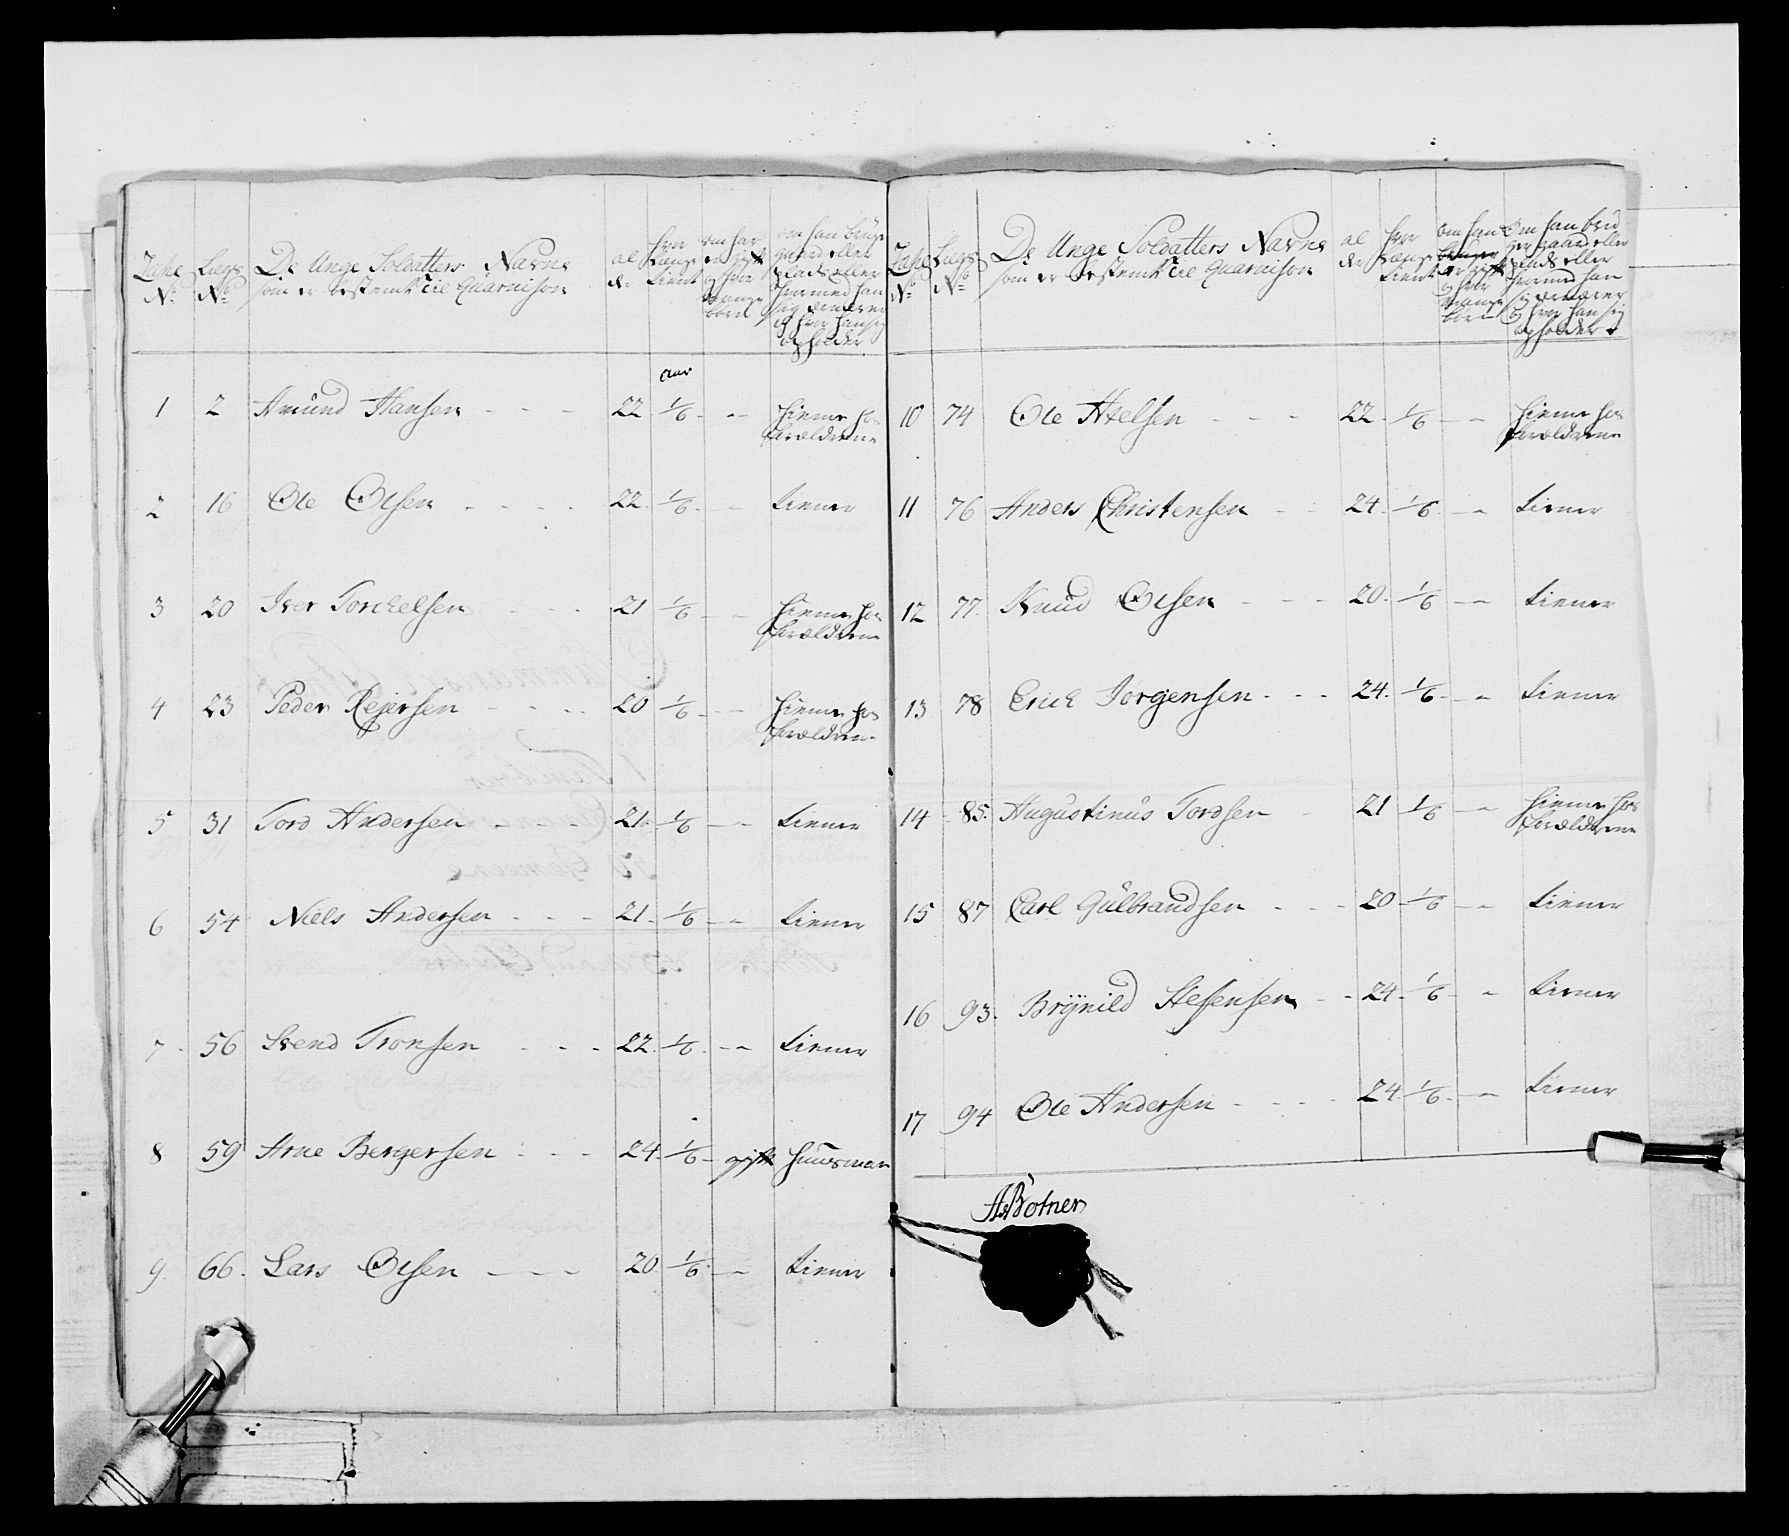 Tahl
No
Lægs
No
De Unge Soldatters Navne
som er bestemt til Guarnison
al
der
hvor
længe
tient
om har
er gift
og hvor
mange
børn
om han bruger
gaard eller
plads eller
hvormed han
sig ernærer
og hvor han sig
opholder
aar
1 2 Amund Hansen - - - 22 1/6 - - hieme hos
forældrene
2 16 Ole Olsen - - - - 22 1/6 - - tiener
3 20 Iver Torckelsen - - - 21 1/6 - - hieme hos
forældrene
4 23 Peder Rejersen - - - - 20 1/6 - - hieme hos
forældrene
5 31 Tord Andersen - - - 21 1/6 - - tiener
6 54 Niels Andersen - - - 21 1/6 - - tiener
7 56 Svend Tronsen - - - 22 1/6 - - tiener
8 59 Arne Bergersen - - - 24 1/6 - gift huusman
9 66 Lars Olsen - - - 20 1/6 - - tiener
Tahl
No
Lægs
No
De Unge Soldatters Navne
som er bestemt til Guarnison
al
der
hvor
længe
tient
om han
er gift
og hvor
mange
børn
Om han brud
ger gaard eller
plads eller
hvormed han
sig ernærer
og hvor han sig
opholder
10 74 Ole Axelsen - - - 22 1/6 - - hieme hos
forældrene
11 76 Anders Christensen - - 24 1/6 - - tiener
12 77 Knud Olsen - - - 20 1/6 - - tiener
13 78 Erich Jorgensen - - - 24 1/6 - - tiener
14 85 Augustinus Tordsen - 21 1/6 - - hieme hos
forældrene
15 87 Carl Gulbrandsen - - - 20 1/6 - - tiener
16 93 Brynild Stefensen - - 24 1/6 - - tiener
17 94 Ole Andersen - - - - 24 1/6 - - tiener
A Botner